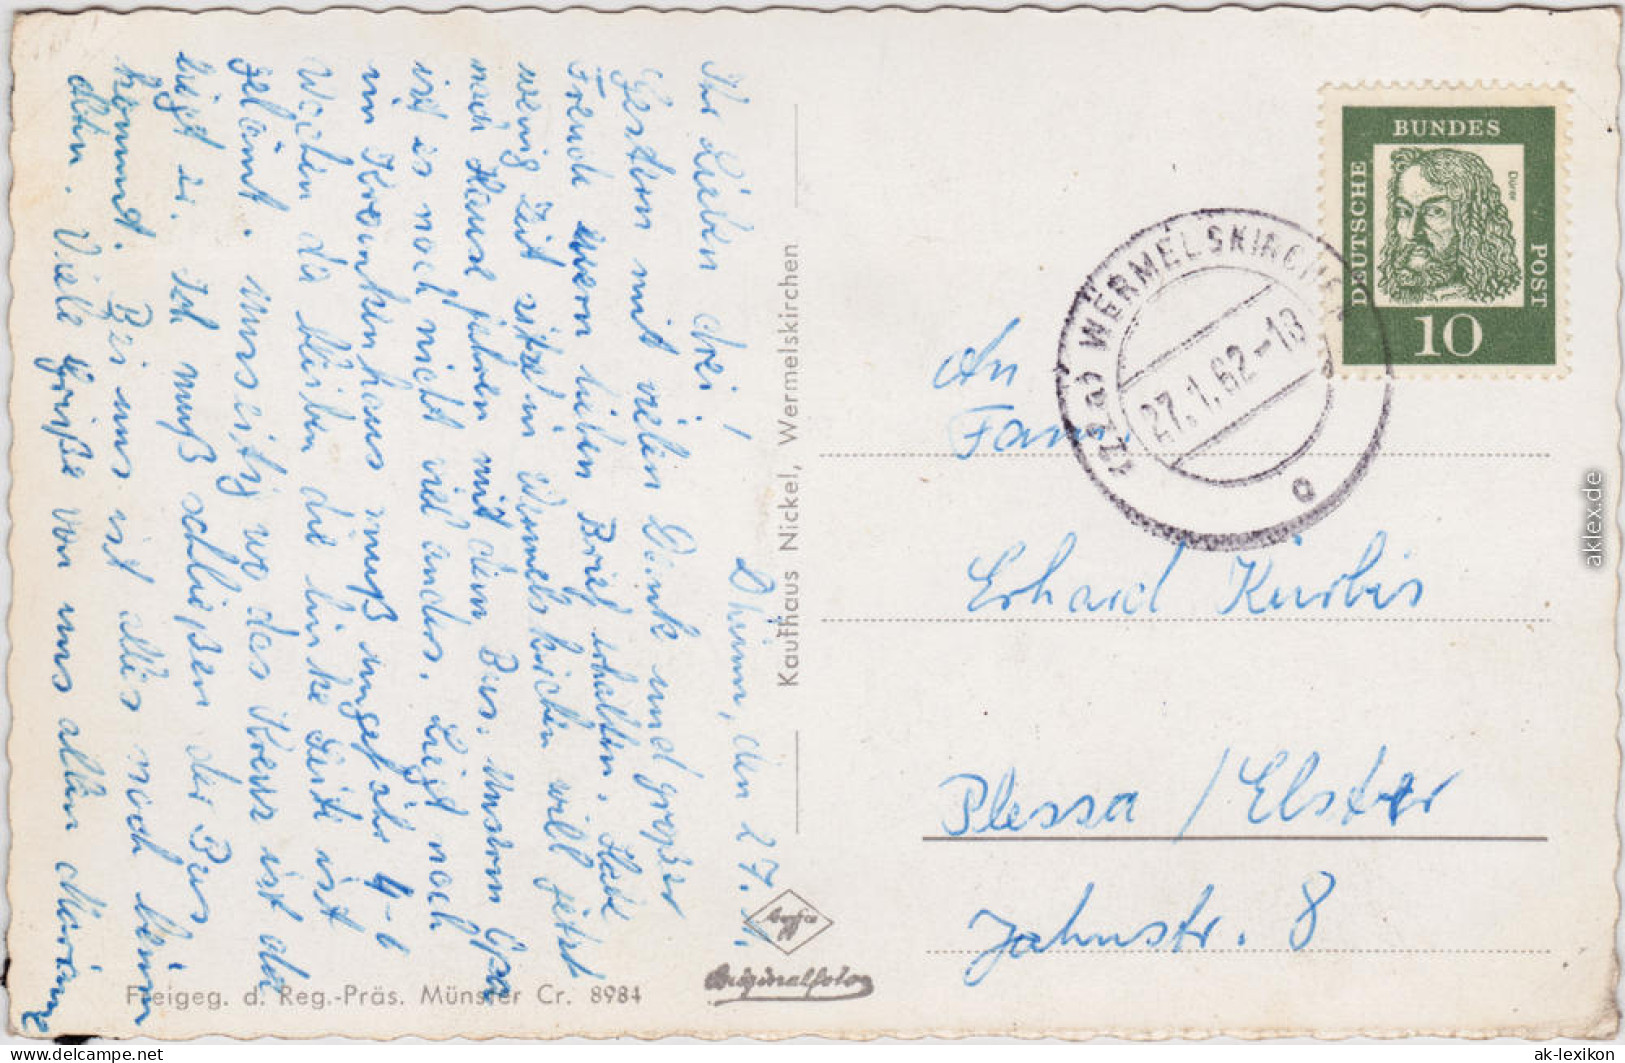 Dhünn, den 27. 1.
Ihr Lieben drei,
Gestern mit vielen Dank und großer
Freude euern lieben Brief erhalten. Habe
wenig Zeit sitze in Wermelskirchen will jetzt
nach Hause fahren mit dem Bus. Unserm Opa
ist es noch nicht viel anders. Liegt noch
im Krankenhaus muß ungefähr 4-6
Wochen da bleiben die linke Seite ist
gelämt. wo das Kreuz ist da
liegt er. Ich muß schließen der Bus
kommt. Bei uns ist alles noch beim
alten. Viele Grüße von uns allen
Kaufhaus Nickel, Wermelskirchen
Freigeg. d. Reg.-Präs. Münster Cr. 8984
Agfa
Originalfoto
DEUTSCHE
BUNDES
POST
Dürer
10
WERMELSKIRCHEN
27.1.62-13
a
An
Fam.
Erhard Kürbis
Plessa / Elster
Jahnstr. 8
aklex.de
ak-ansichtskarten.de
ak-lexikon